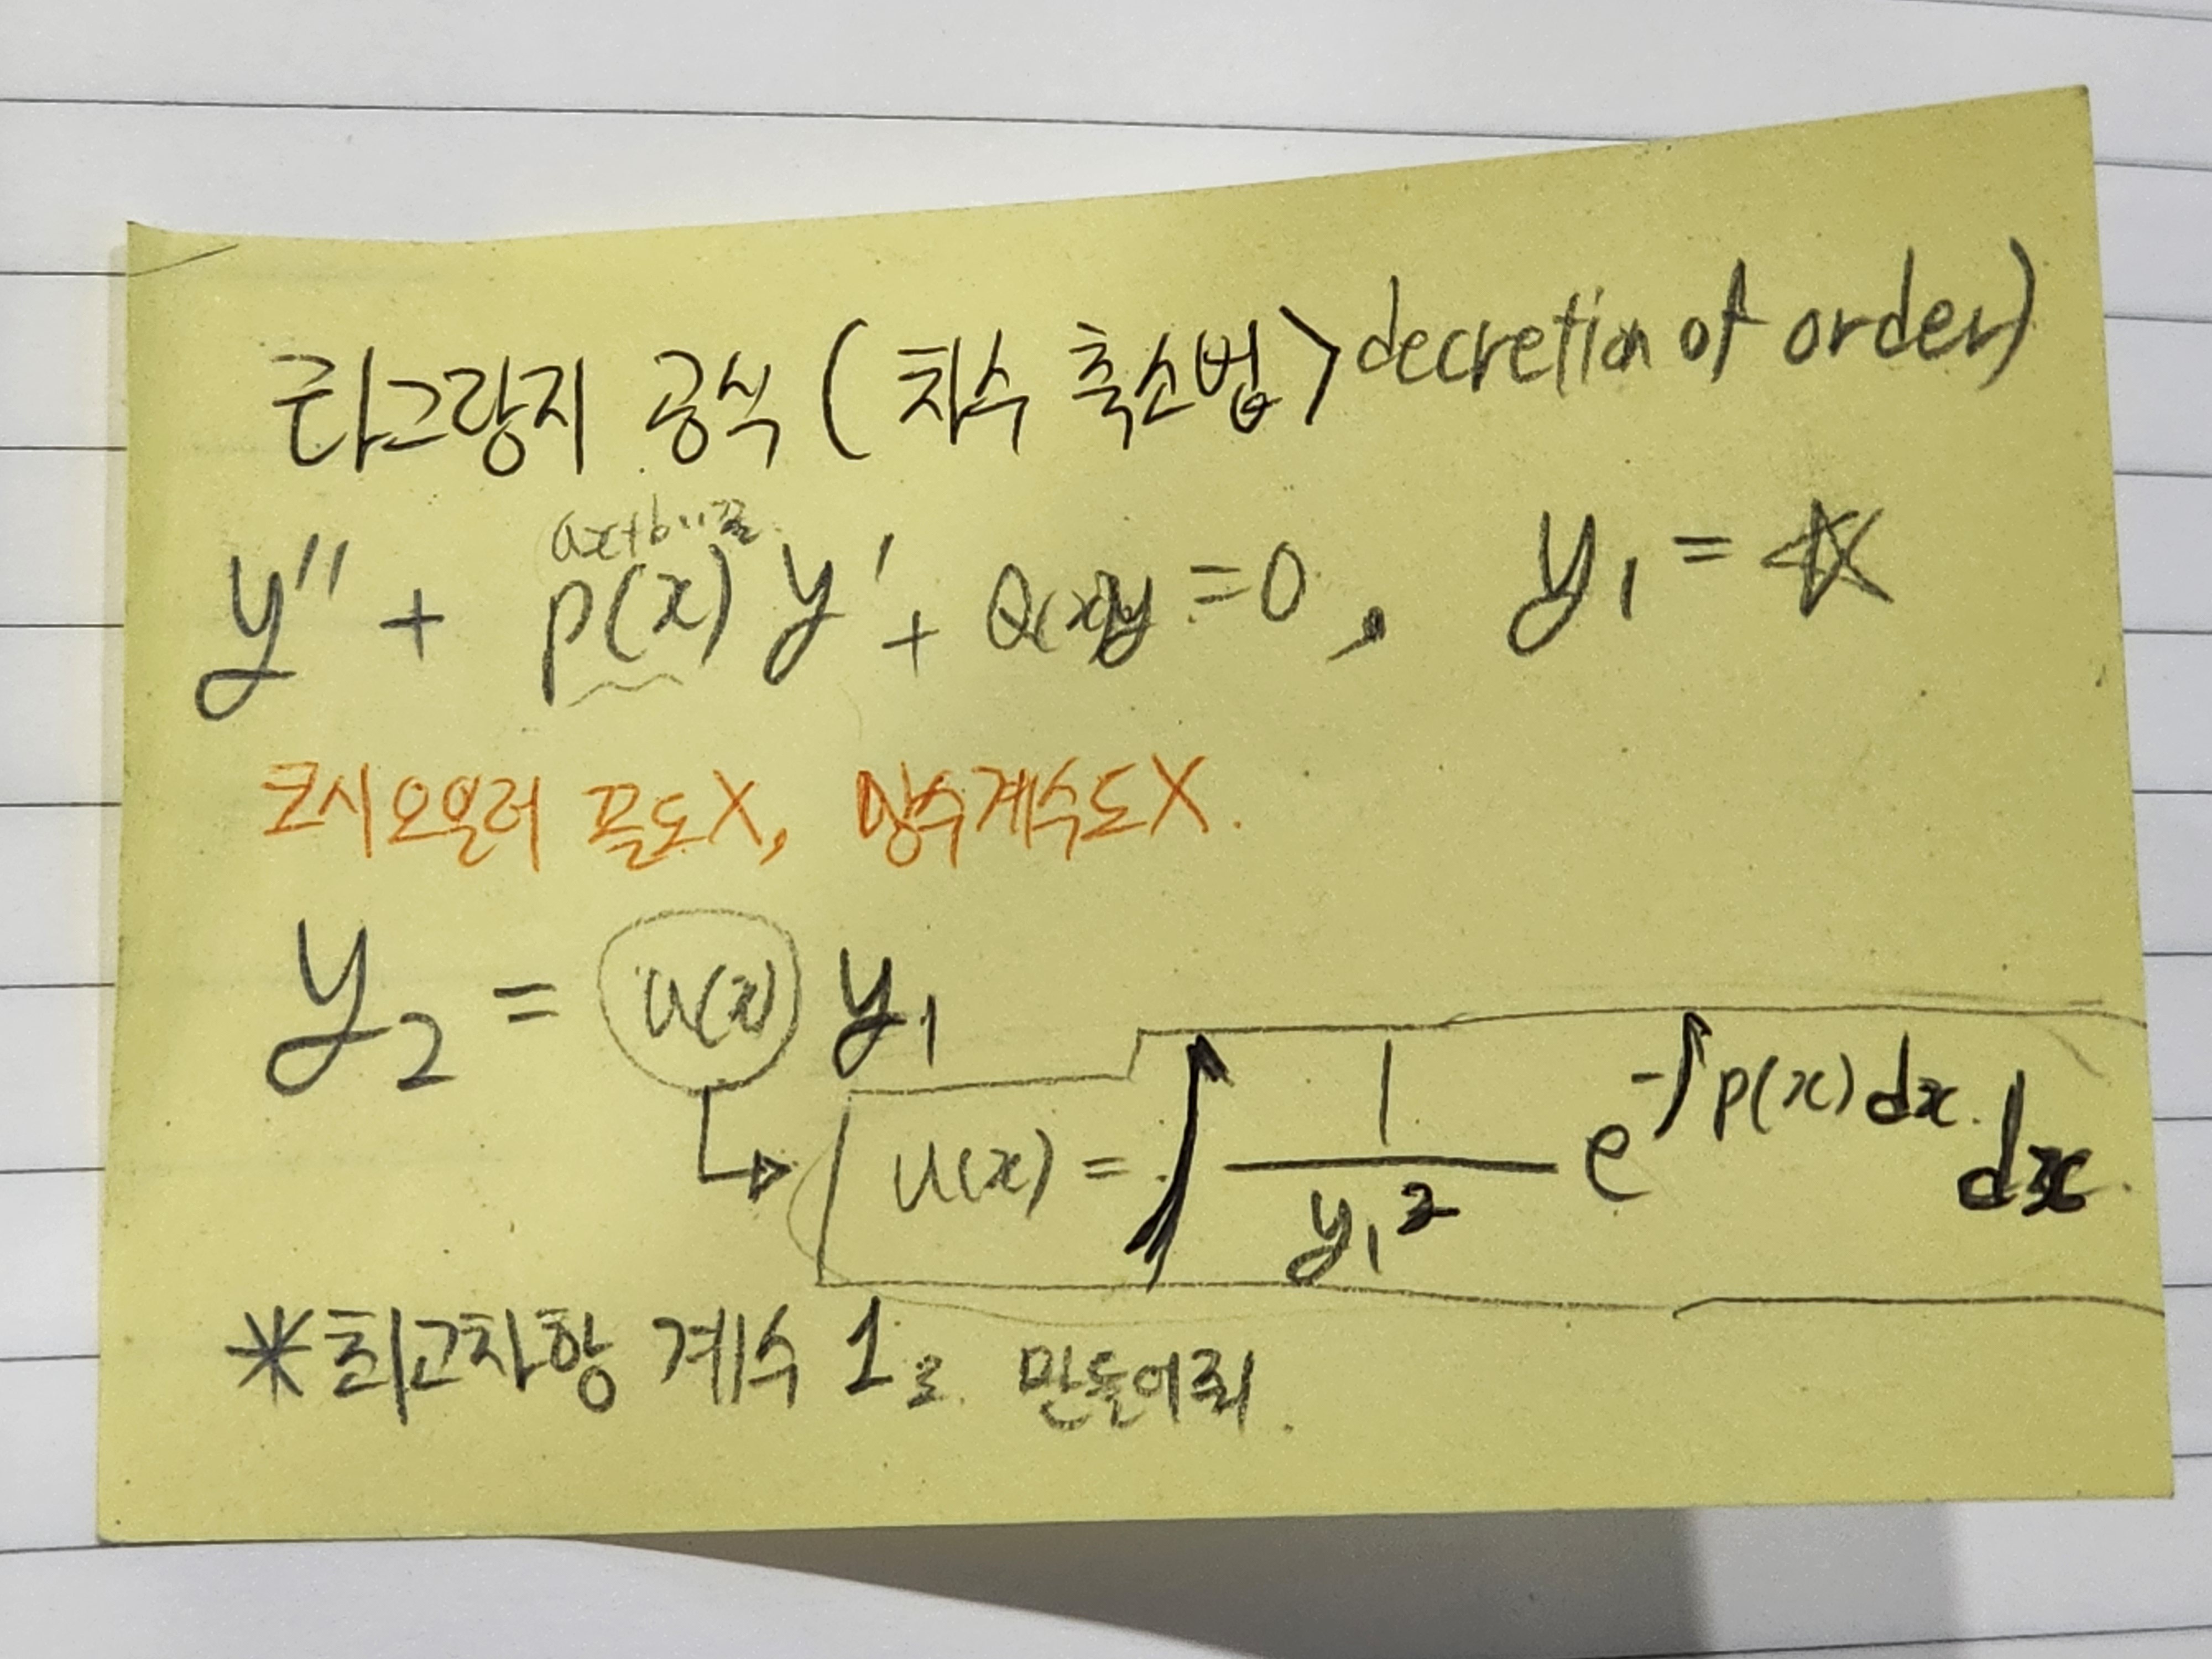 라그랑지 공식 (차수 축소법 > decretion of order)
ax+b"꼴
y'' + p(x) y' + Q(x)y = 0, y₁ = ☆
코시오일러 꼴도X, 상수계수도X.
y₂ = u(x) y₁
u(x) = ∫ 1/y₁² e^(-∫p(x)dx) dx.
*최고차항 계수 1로 만들어줘.